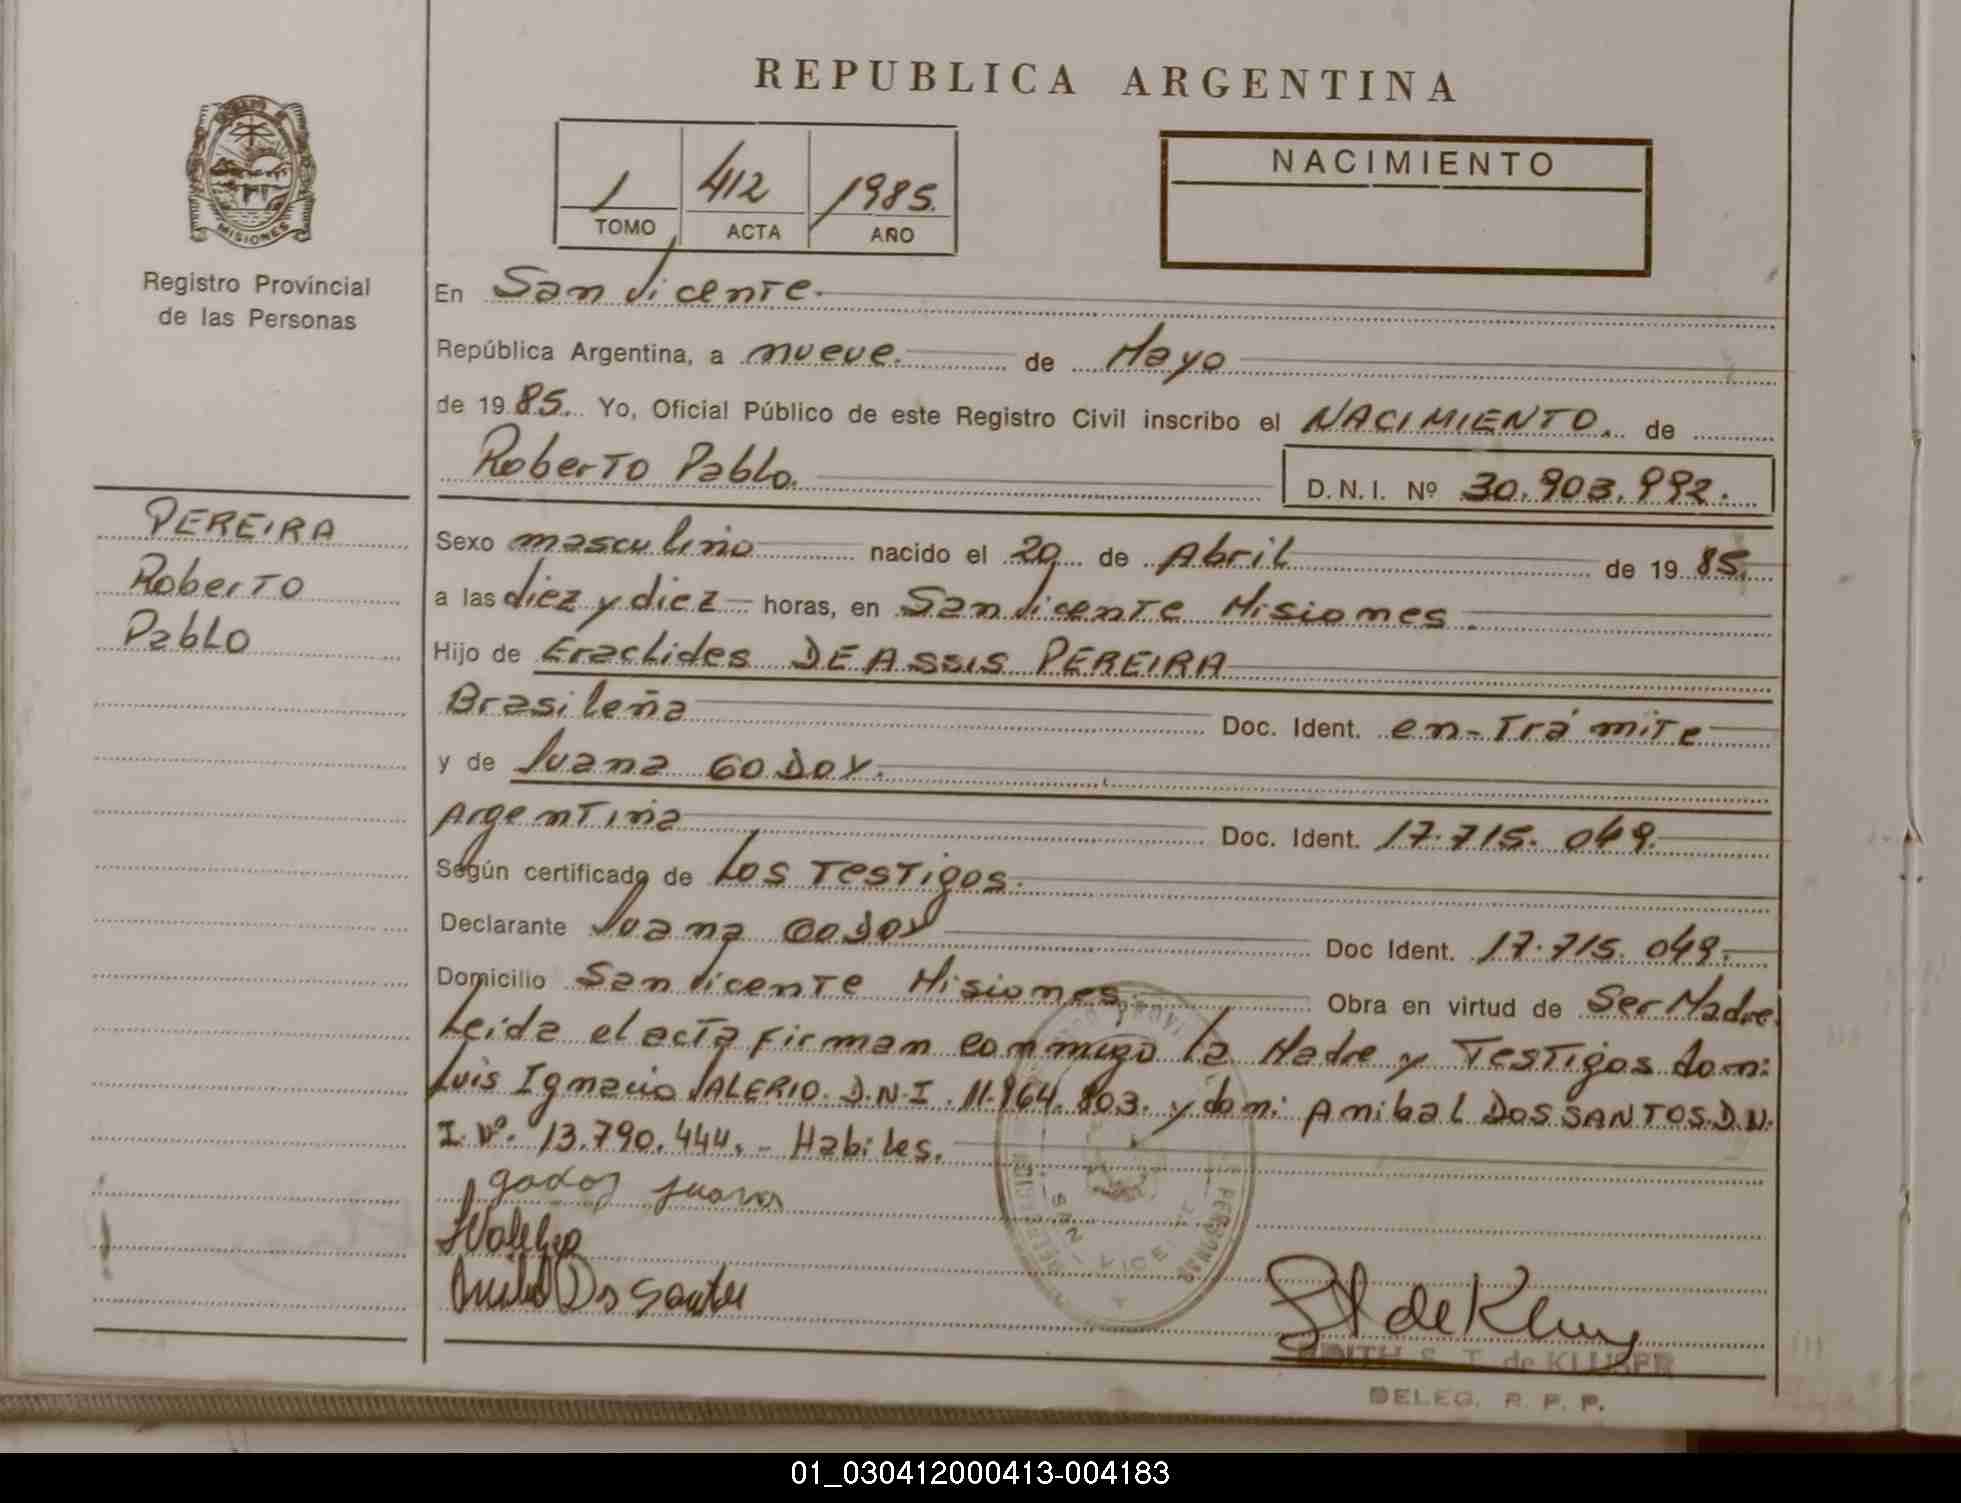 REPUBLICA ARGENTINA
MISIONES
Registro Provincial
de las Personas
1 412 1985.
TOMO ACTA AÑO
NACIMIENTO
En San Vicente.
República Argentina, a nueve. de Mayo
de 19 85. Yo, Oficial Público de este Registro Civil inscribo el NACIMIENTO. de
Roberto Pablo. D.N.I. Nº 30.903.992.
PEREIRA
Roberto
Pablo
Sexo masculino nacido el 20 de Abril de 19 85.
a las diez y diez horas, en San Vicente Misiones.
Hijo de Eraclides DE ASSIS PEREIRA
Brasileña Doc. Ident. en-trámite
y de Juana GODOY.
Argentina Doc. Ident. 17.715.049.
Según certificado de Los Testigos.
Declarante Juana GODOY Doc Ident. 17.715.049.
Domicilio San Vicente Misiones. Obra en virtud de Ser Madre.
Leida el acta firman conmigo la Madre y Testigos don:
Luis Ignacio VALERIO. D.N.I. 11.964.803. y don: Anibal DOS SANTOS. D.N.
I. Nº. 13.790.444. - Habiles.
godoy juana
Anibal Dos Santos
SAN VICENTE
PERSONAS
EDITH S. T. de KLUSER
DELEG. R. P. P.
01_030412000413-004183